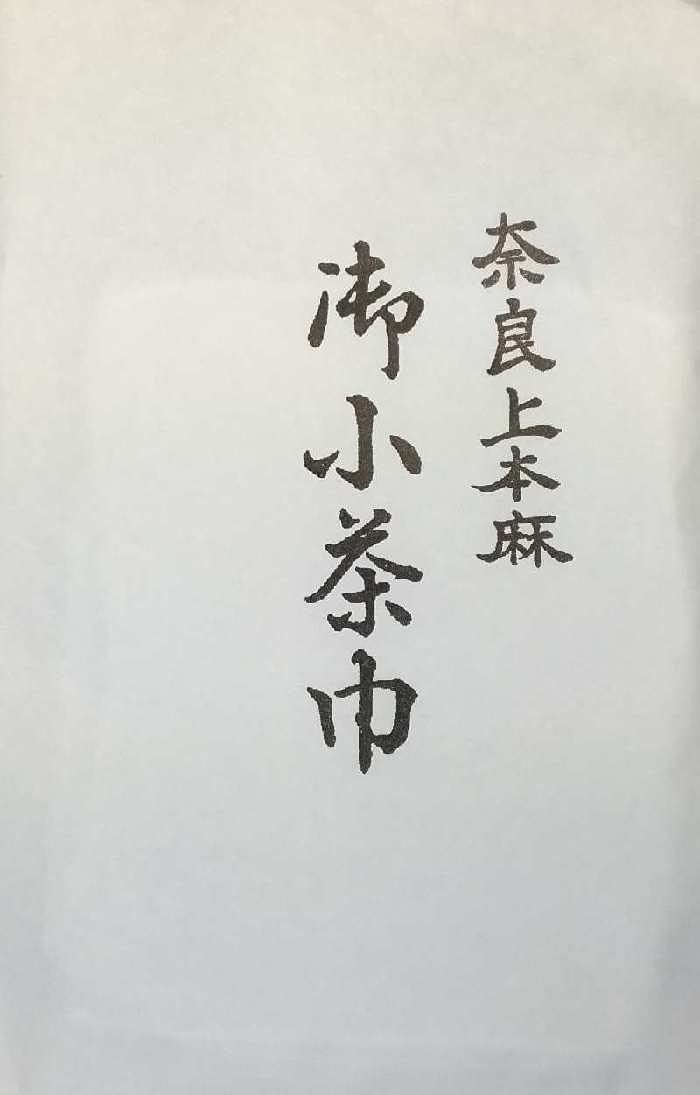 奈良上本麻
御小茶巾